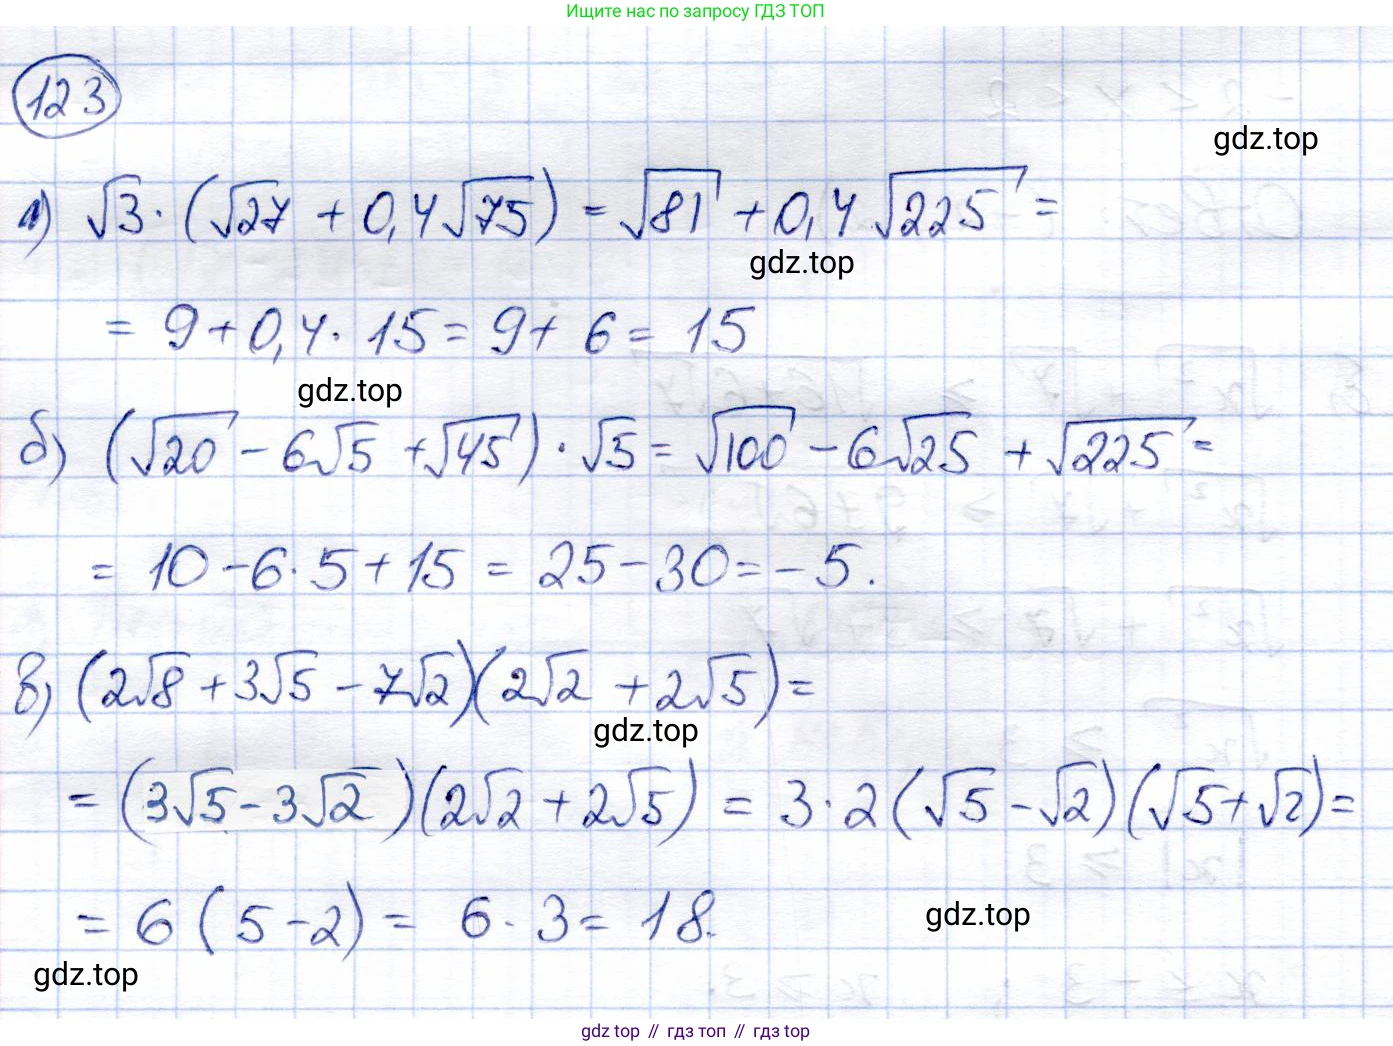 Ищите нас по запросу ГДЗ ТОП
123
gdz.top
а) √3 · (√27 + 0,4√75) = √81 + 0,4 √225 =
gdz.top
= 9 + 0,4 · 15 = 9 + 6 = 15
gdz.top
б) (√20 - 6√5 + √45) · √5 = √100 - 6√25 + √225 =
= 10 - 6 · 5 + 15 = 25 - 30 = - 5.
в) (2√8 + 3√5 - 7√2)(2√2 + 2√5) =
gdz.top
= (3√5 - 3√2)(2√2 + 2√5) = 3 · 2 (√5 - √2)(√5 + √2) =
= 6 (5 - 2) = 6 · 3 = 18.
gdz.top
gdz.top
gdz top // гдз топ // гдз top